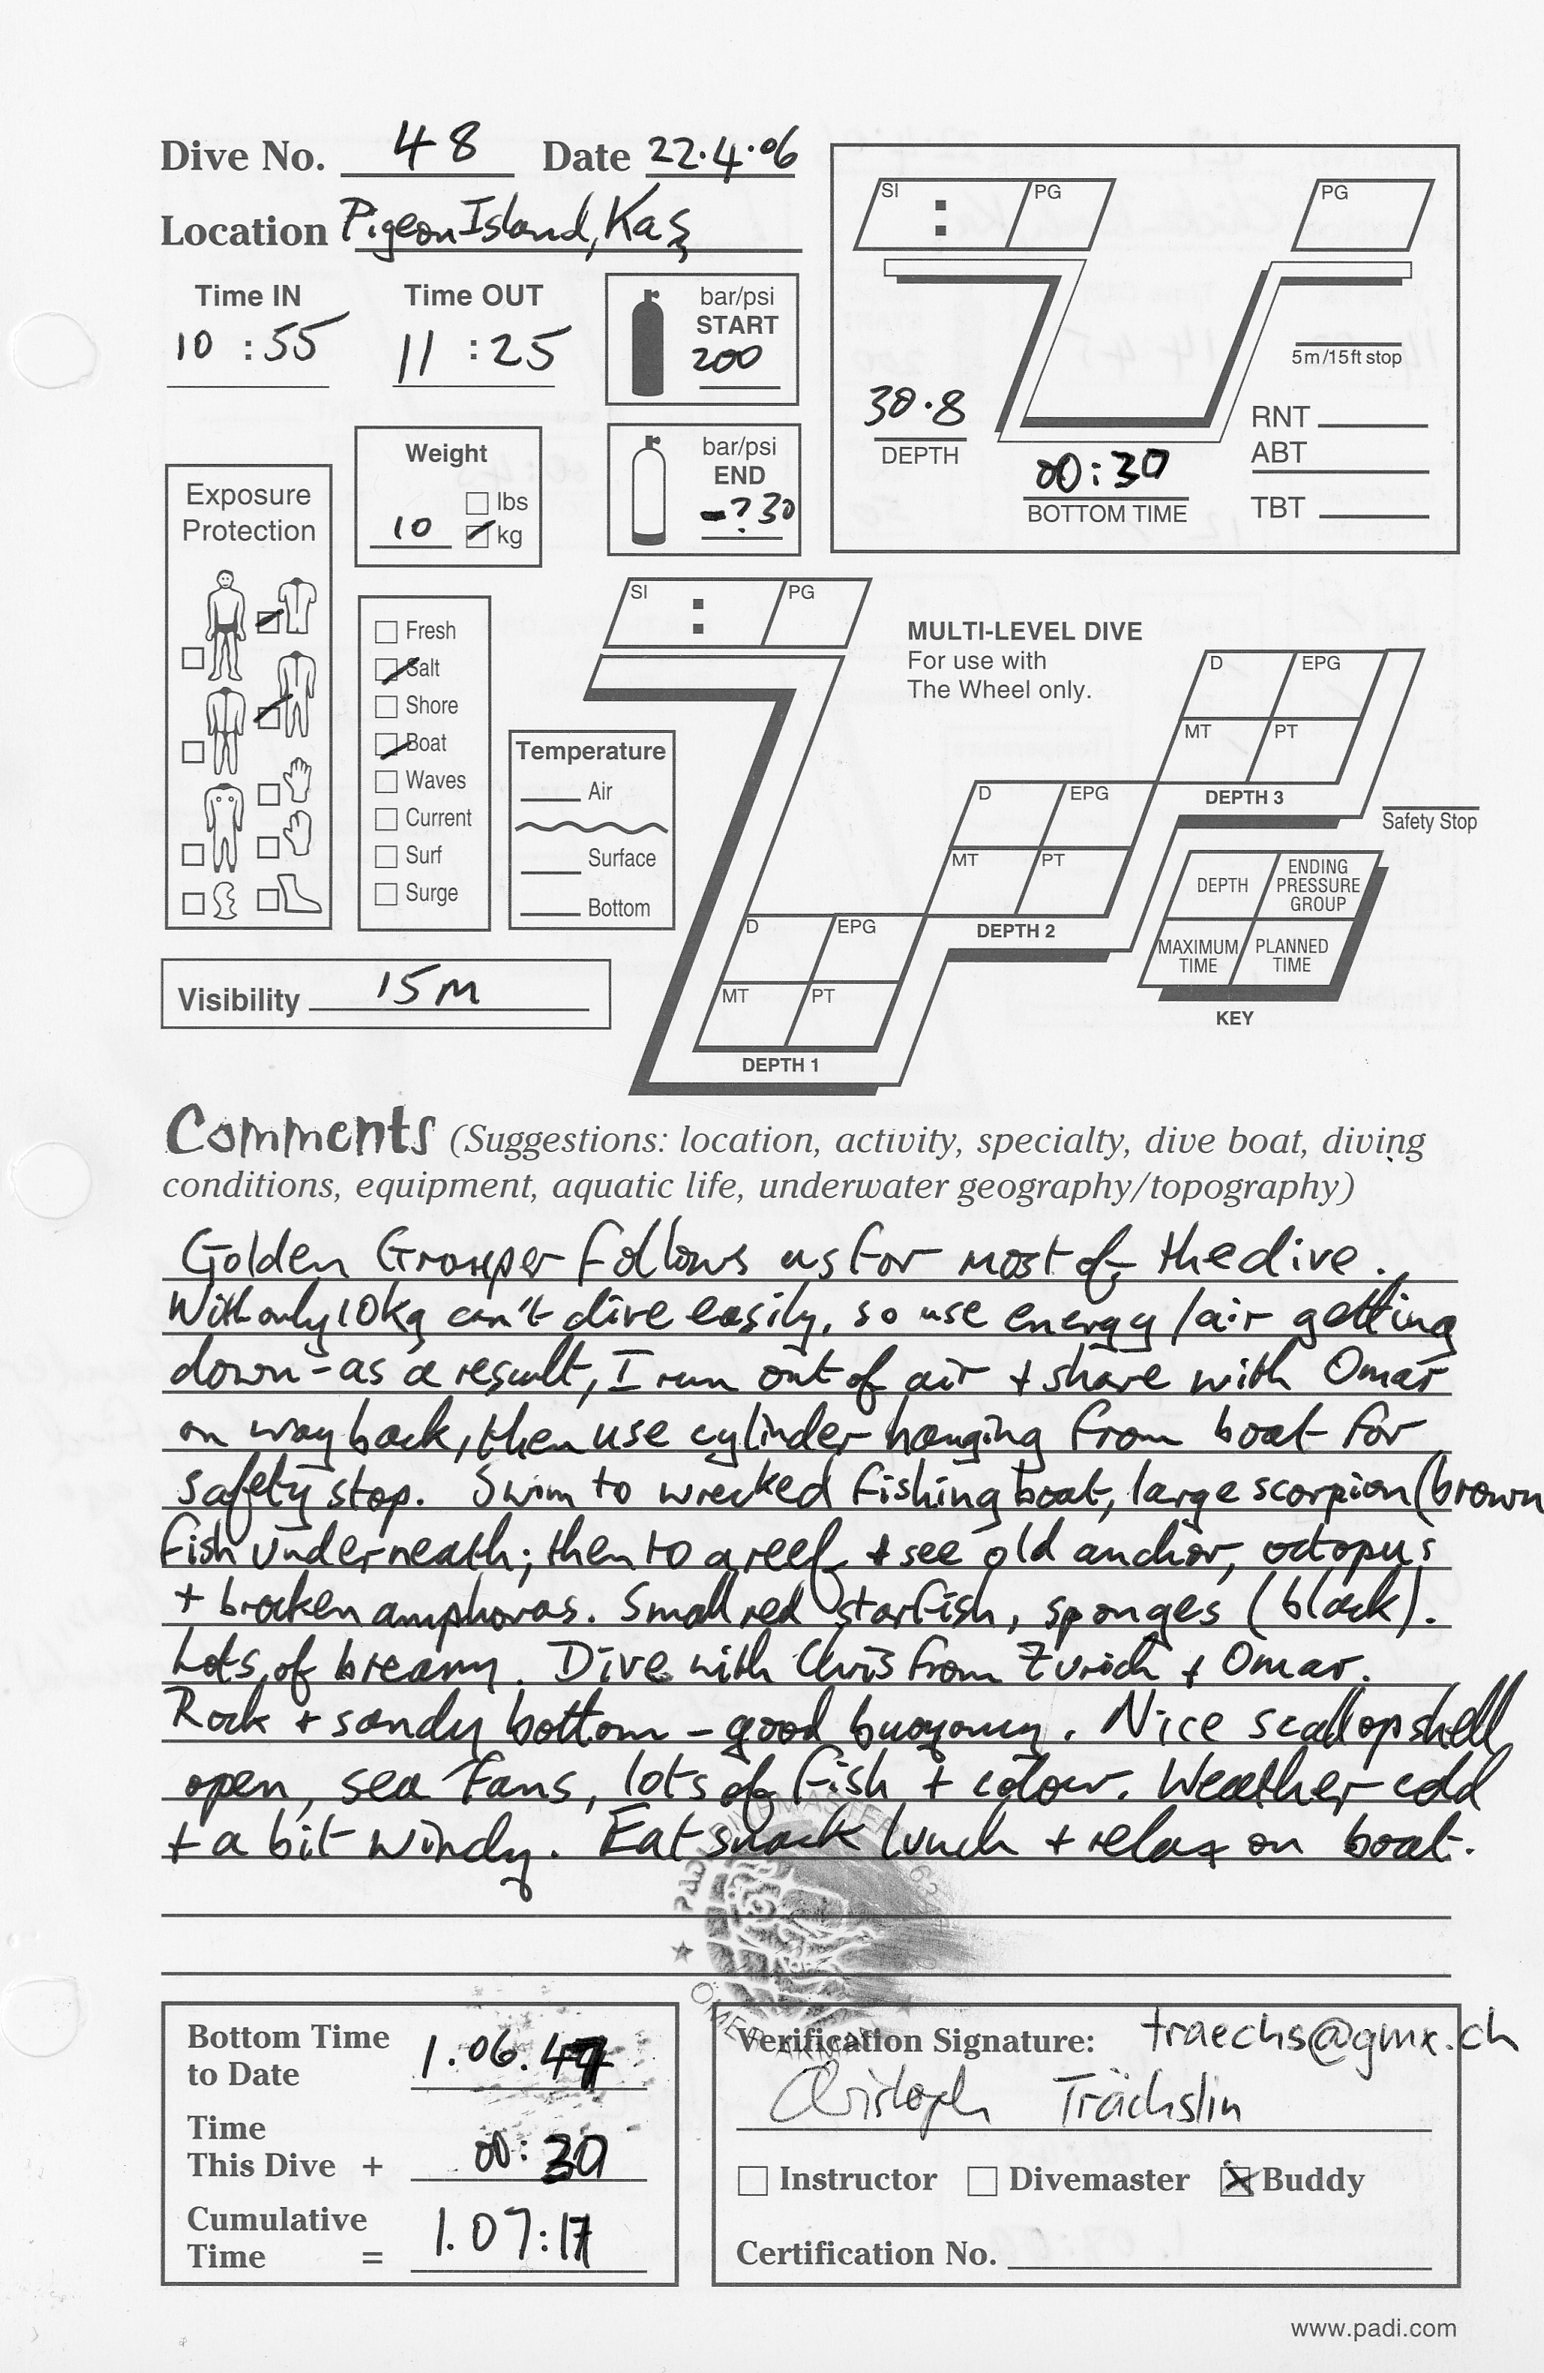 Dive No. 48 Date 22.4.06
Location Pigeon Island, Kaş
Time IN
10 : 55
Time OUT
11 : 25
bar/psi
START
200
bar/psi
END
-? 30
Weight
lbs
10 kg
Exposure
Protection
Fresh
Salt
Shore
Boat
Waves
Current
Surf
Surge
Temperature
Air
Surface
Bottom
Visibility 15m
SI : PG
PG
5m/15ft stop
30.8
DEPTH
00:30
BOTTOM TIME
RNT
ABT
TBT
SI : PG
MULTI-LEVEL DIVE
For use with
The Wheel only.
D EPG
MT PT
DEPTH 3
D EPG
MT PT
DEPTH 2
D EPG
MT PT
DEPTH 1
Safety Stop
DEPTH
ENDING
PRESSURE
GROUP
MAXIMUM
TIME
PLANNED
TIME
KEY
Comments (Suggestions: location, activity, specialty, dive boat, diving
conditions, equipment, aquatic life, underwater geography/topography)
Golden Grouper follows us for most of the dive.
With only 10kg can't dive easily, so use energy/air getting
down - as a result, I run out of air + share with Omar
on way back, then use cylinder hanging from boat for
safety stop. Swim to wrecked fishing boat, large scorpion (brown
fish underneath; then to a reef + see old anchor, octopus
+ broken amphoras. Small red starfish, sponges (black).
Lots of bream. Dive with Chris from Zurich + Omar.
Rock + sandy bottom - good buoyancy. Nice scallop shell
open, sea fans, lots of fish + colour. Weather cold
+ a bit windy. Eat snack lunch + relax on boat.
PADI DIVEMASTER
ÖMER
Bottom Time
to Date 1.06.47
Time
This Dive + 00:30
Cumulative
Time = 1.07:17
Verification Signature: traechs@gmx.ch
Christoph Trächslin
Instructor Divemaster Buddy
Certification No.
www.padi.com